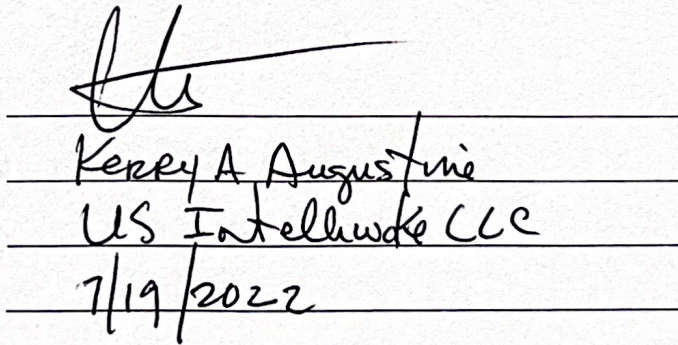 Kerry A Augustine
US Intelliwoke LLC
7/19/2022